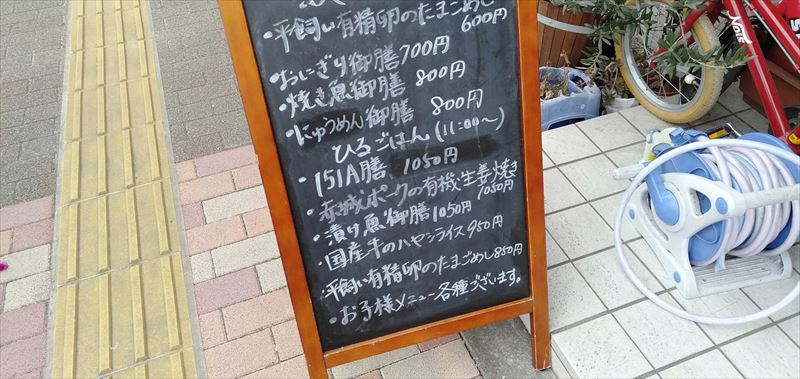 ・平飼い有精卵のたまごめし 600円
・おにぎり御膳 700円
・焼き魚御膳 800円
・にゅうめん御膳 800円
ひるごはん (11:00〜)
・151A膳 1050円
・赤城ポークの有機生姜焼き 1050円
・漬け魚御膳 1050円
・国産牛のハヤシライス 950円
・平飼い有精卵のたまごめし 850円
・お子様メニュー各種ございます。